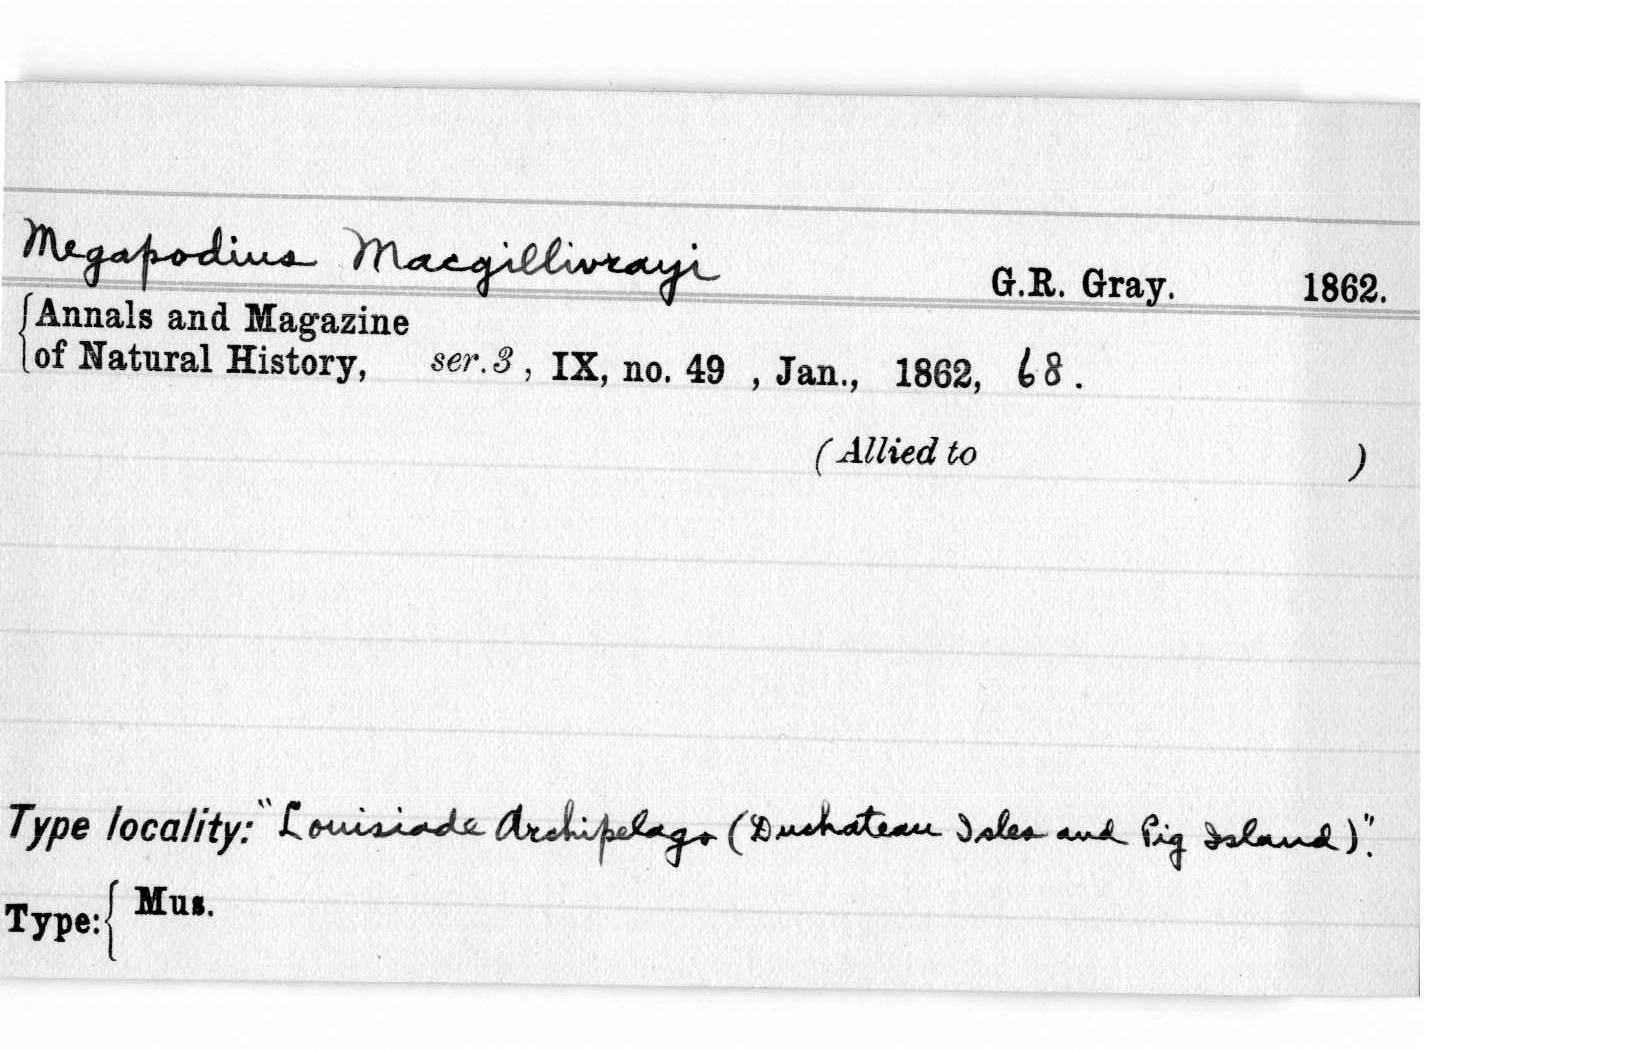 Megapodius Macgillivrayi G.R. Gray. 1862.
Annals and Magazine
of Natural History, ser. 3, IX, no. 49, Jan., 1862, 68.
(Allied to )
Type locality: "Louisiade Archipelago (Duchateau Isles and Pig Island)".
Type: Mus.